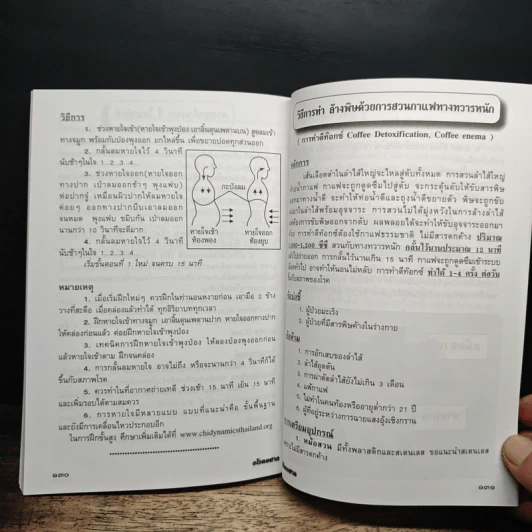 วิธีการ
1. ช่วงหายใจเข้า(หายใจเข้าพุงป่อง เอาลิ้นดุนเพดานบน) สูดลมเข้า
ทางจมูก พร้อมกับป่องพุงออก ยกไหล่ขึ้น เพื่อขยายปอดทุกส่วนออก
2. กลั้นลมหายใจไว้ 4 วินาที
นับช้าๆในใจ 1..2..3..4..
3. ช่วงหายใจออก(หายใจออก
ทางปาก เป่าลมออกช้าๆ พุงแฟบ)
ห่อปากจู๋ เหมือนผิวปากให้ลมหายใจ
ค่อยๆ ออกทางปากบีบเอาลมออก
จนหมด พุงแฟบ ขมิบก้น เป่าลมออก
นานกว่า 10 วินาทีจะดีมาก
4. กลั้นลมหายใจไว้ 4 วินาที
นับช้าๆในใจ 1..2..3..4..
เริ่มขั้นตอนที่ 1 ใหม่ จนครบ 15 นาที
กะบังลม
หายใจเข้า
ท้องพอง
หายใจออก
ท้องยุบ
หมายเหตุ
1. เมื่อเริ่มฝึกใหม่ๆ ควรฝึกในท่านอนหงายก่อน เอามือ 2 ข้าง
วางที่สะดือ เมื่อคล่องแล้วทำได้ ทุกอิริยาบททุกเวลา
2. ฝึกหายใจเข้าทางจมูก เอาลิ้นดุนเพดานปาก หายใจออกทางปาก
ให้คล่องก่อนแล้ว ค่อยฝึกหายใจเข้าพุงป่อง
3. เทคนิคการฝึกหายใจเข้าพุงป่อง ให้ลองป่องพุงออกก่อน
แล้วหายใจเข้าตาม ฝึกจนคล่อง
4. การกลั้นลมหายใจ อาจไม่ถึง หรือจะนานกว่า 4 วินาทีก็ได้
ขึ้นกับสภาพโรค
5. ควรทำในที่อากาศถ่ายเทดี ช่วงเช้า 15 นาที เย็น 15 นาที
และเพิ่มรอบได้ตามสมควร
6. การหายใจมีหลายแบบ แบบที่แนะนำคือ ขั้นพื้นฐาน
และยังมีการเคลื่อนไหวประกอบอีก
ในการฝึกขั้นสูง ศึกษาเพิ่มเติมได้ที่ www.chidynamicsthailand.org
๑๓๐
วิธีการทำ ล้างพิษด้วยการสวนกาแฟทางทวารหนัก
( การทำดีท๊อกซ์ Coffee Detoxification, Coffee enema )
หลักการ
เส้นเลือดดำในลำไส้ใหญ่จะไหลสู่ตับทั้งหมด การสวนลำไส้ใหญ่
น้ำกาแฟ กาแฟจะถูกดูดซึมไปสู่ตับ จะกระตุ้นตับให้ขับสารพิษ
ออกมาทางน้ำดี จะทำให้ท่อน้ำดีและถุงน้ำดีขยายตัว พิษจะถูกขับ
มาในลำไส้พร้อมอุจจาระ การสวนไม่ได้มุ่งหวังในการล้างลำไส้
ต้องการขับพิษออกจากตับ ผลพลอยได้จะทำให้ขับอุจจาระออกมา
การทำดีท๊อกซ์ต้องใช้กาแฟธรรมชาติ ไม่มีสารตกค้าง ปริมาณ
1,000-1,200 ซีซี สวนกับทางทวารหนัก กลั้นไว้นานประมาณ 12 นาที
แล้วไปถ่ายออก การกลั้นไว้นานเกิน 15 นาที กาแฟจะถูกดูดซึมเข้าระบบ
ทั่วไป อาจทำให้นอนไม่หลับ การทำดีท๊อกซ์ ทำได้ 1-4 ครั้ง ต่อวัน
กับสภาพของโรค
1. ผู้ป่วยมะเร็ง
2. ผู้ป่วยที่มีสารพิษค้างในร่างกาย
1. การอักเสบของลำไส้
2. ลำไส้อุดตัน
3. การผ่าตัดลำไส้ยังไม่เกิน 3 เดือน
4. แพ้กาแฟ
5. ไม่ทำในคนท้องหรืออายุต่ำกว่า 21 ปี
6. ผู้ที่อยู่ระหว่างการฉายแสงอุ้งเชิงกราน
การเตรียมอุปกรณ์
1. หม้อสวน มีทั้งพลาสติกและสเตนเลส ขอแนะนำสเตนเลส
ไม่มีสารตกค้าง
๑๓๑